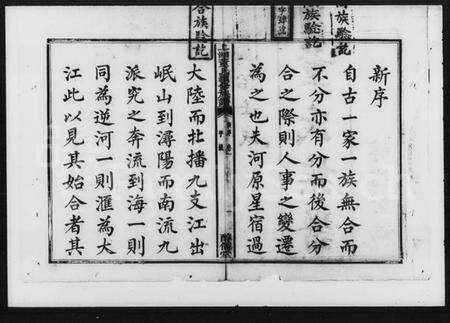 合族驗訖
合族驗訖
新序
自古一家一族無合而
不分亦有分而後合分
合之際則人事之變遷
為之也夫河原星宿過
大陸而北播九支江出
岷山到潯陽而南流九
派究之奔流到海一則
同為逆河一則滙為大
江此以見其始合者其